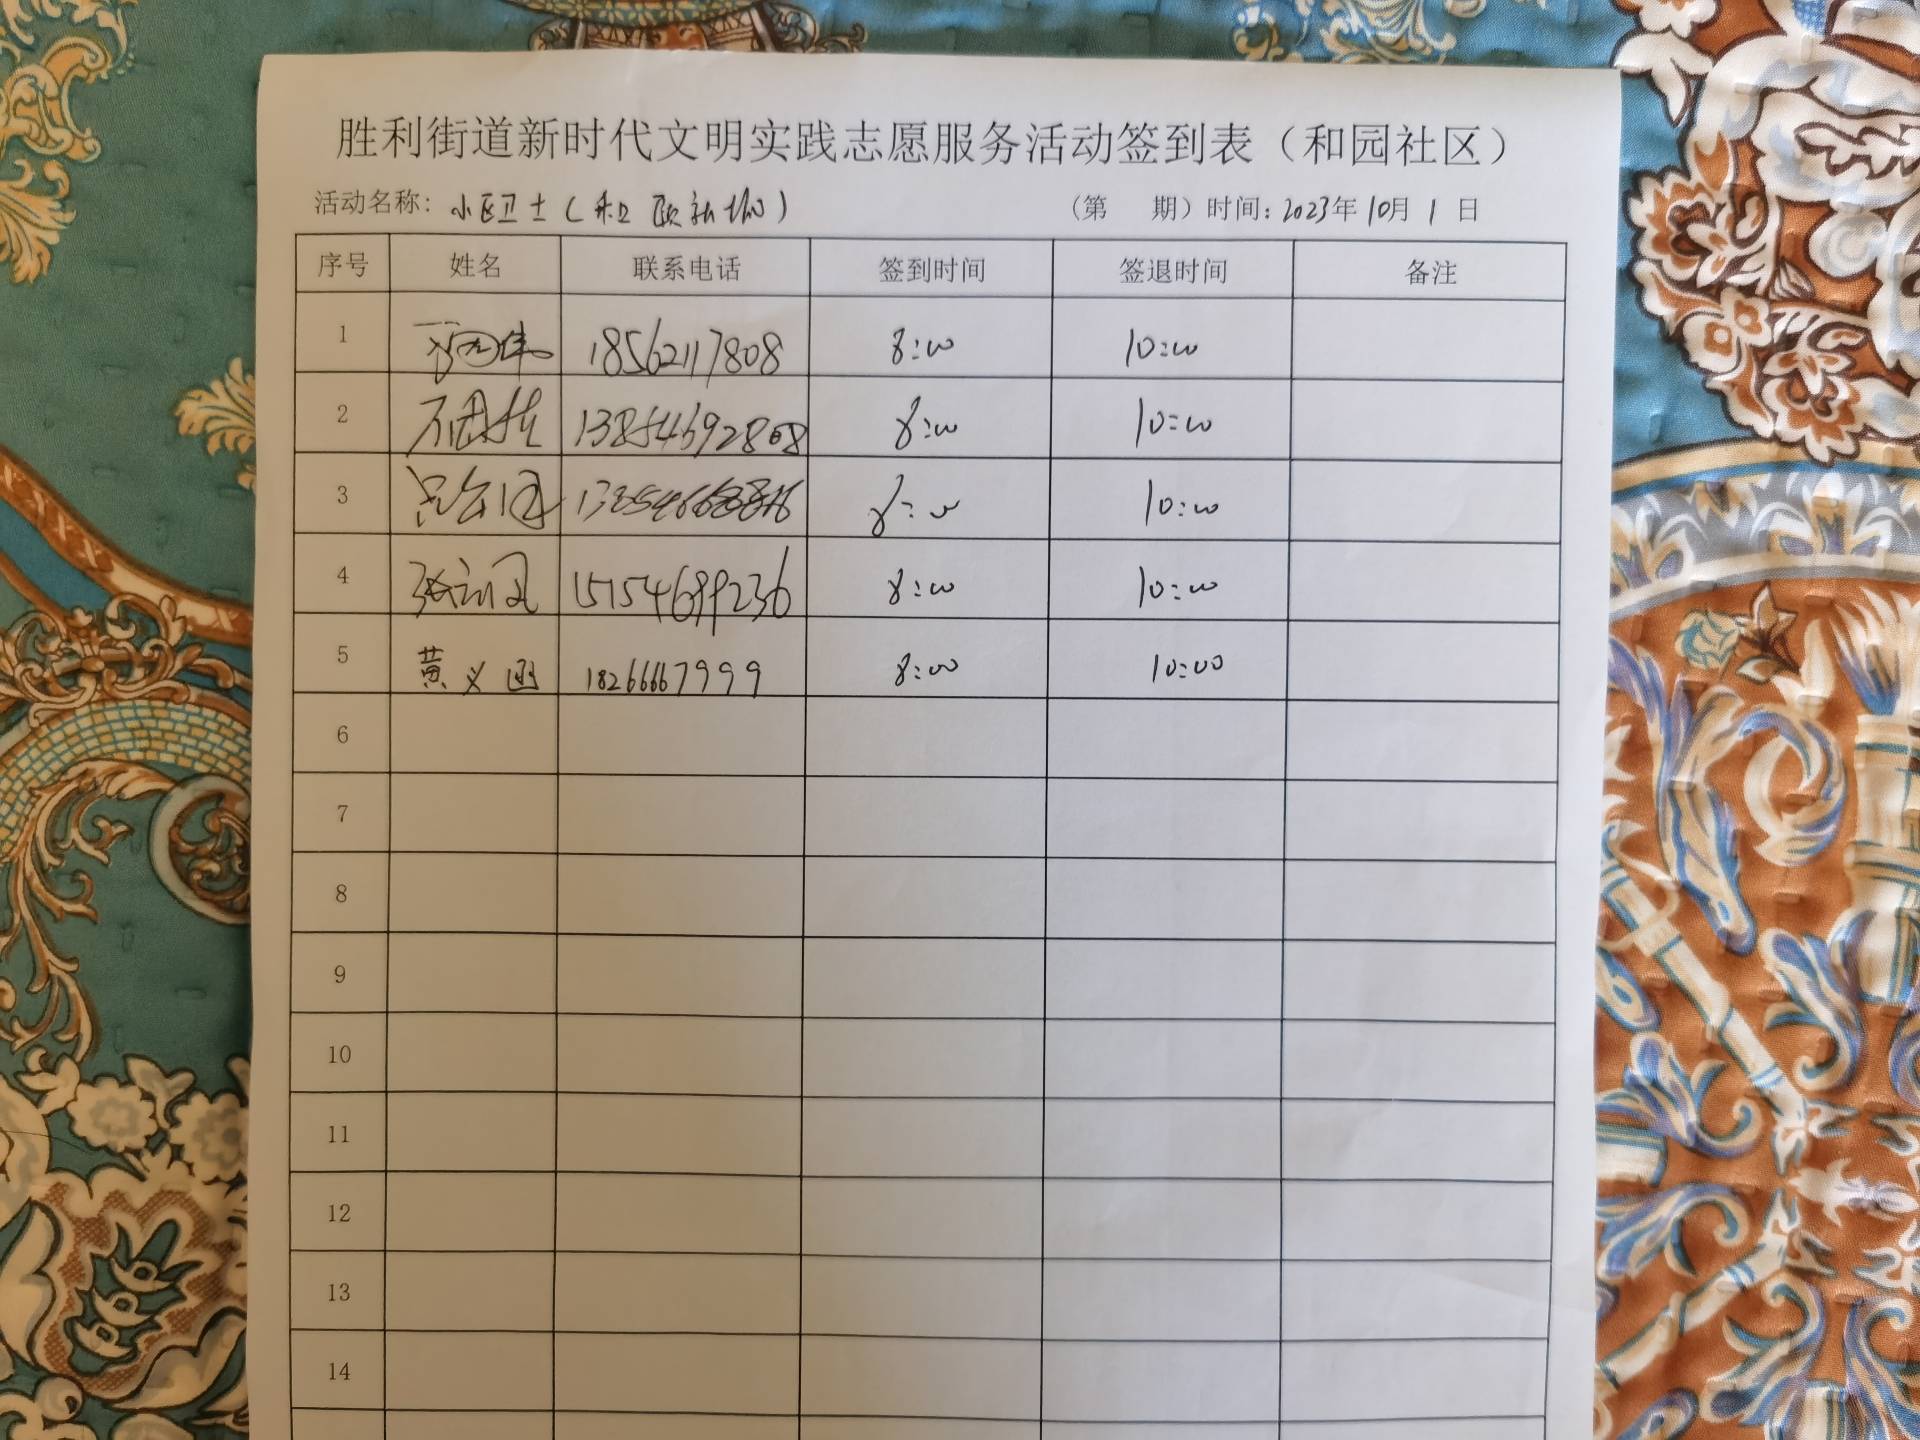 胜利街道新时代文明实践志愿服务活动签到表（和园社区）
活动名称：小区卫士（ （第 期）时间：2023年10月1日
序号 姓名 联系电话 签到时间 签退时间 备注
1 18562117808 8:00 10:00
2 13854692808 8:00 10:00
3 8:00 10:00
4 15154699236 8:00 10:00
5 黄义函 18266667999 8:00 10:00
6
7
8
9
10
11
12
13
14